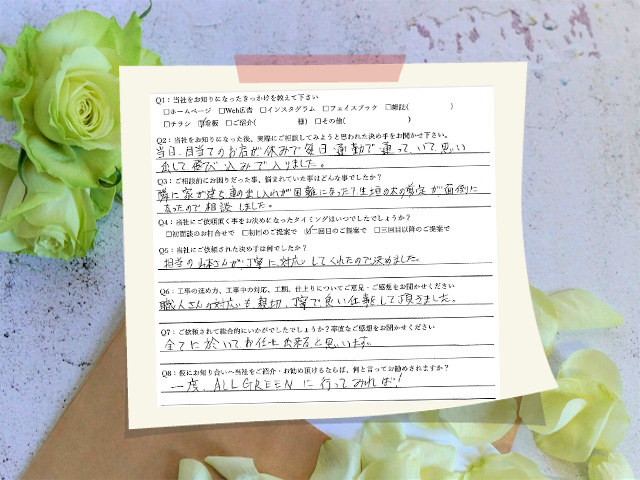 Q1：当社をお知りになったきっかけを教えて下さい
□ホームページ □Web広告 □インスタグラム □フェイスブック □雑誌( )
□チラシ ☑看板 □ご紹介( 様) □その他( )
Q2：当社をお知りになった後、実際にご相談してみようと思われた決め手をお聞かせ下さい。
当日、目当てのお店が休みで毎日通勤で通っていて思い
出して飛び込みで入りました。
Q3：ご相談前にお困りだった事、悩まれていた事はどんな事でしたか？
隣に家が建ち車の出し入れが困難になった？生垣の木の剪定が面倒に
なったので相談しました。
Q4：当社にご依頼頂く事をお決めになったタイミングはいつでしたでしょうか？
□初面談のお打合せで □初回のご提案で ☑二回目のご提案で □三回目以降のご提案で
Q5：当社にご依頼された決め手は何でしたか？
担当の さんが丁寧に対応してくれたので決めました。
Q6：工事の進め方、工事中の対応、工期、仕上りについてご意見・ご感想をお聞かせください
職人さんの対応も親切、丁寧で良い仕事して頂きました。
Q7：ご依頼されて総合的にいかがでしたでしょうか？率直なご感想をお聞かせください
全てに於いてお任せ出来ると思います。
Q8：仮にお知り合いへ当社をご紹介・お勧め頂けるならば、何と言ってお勧めされますか？
一度、ALL GREENに行ってみれば！